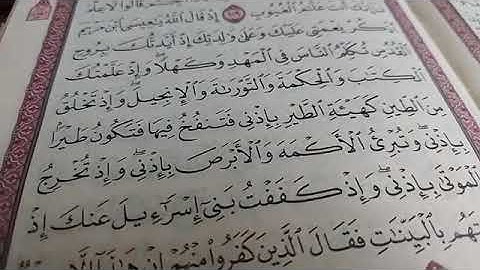 إِنَّكَ أَنتَ عَلَّٰمُ ٱلْغُيُوبِ ١٠٩ إِذْ قَالَ ٱللَّهُ يَٰعِيسَى ٱبْنَ مَرْيَمَ
ٱذْكُرْ نِعْمَتِى عَلَيْكَ وَعَلَىٰ وَٰلِدَتِكَ إِذْ أَيَّدتُّكَ بِرُوحِ
ٱلْقُدُسِ تُكَلِّمُ ٱلنَّاسَ فِى ٱلْمَهْدِ وَكَهْلًا وَإِذْ عَلَّمْتُكَ
ٱلْكِتَٰبَ وَٱلْحِكْمَةَ وَٱلتَّوْرَىٰةَ وَٱلْإِنجِيلَ وَإِذْ تَخْلُقُ
مِنَ ٱلطِّينِ كَهَيْـَٔةِ ٱلطَّيْرِ بِإِذْنِى فَتَنفُخُ فِيهَا فَتَكُونُ طَيْرًۢا
بِإِذْنِى وَتُبْرِئُ ٱلْأَكْمَهَ وَٱلْأَبْرَصَ بِإِذْنِى وَإِذْ تُخْرِجُ
ٱلْمَوْتَىٰ بِإِذْنِى وَإِذْ كَفَفْتُ بَنِىٓ إِسْرَٰٓءِيلَ عَنكَ إِذْ
بِٱلْبَيِّنَٰتِ فَقَالَ ٱلَّذِينَ كَفَرُوا۟ مِنْهُمْ إِنْ هَٰذَآ إِلَّا